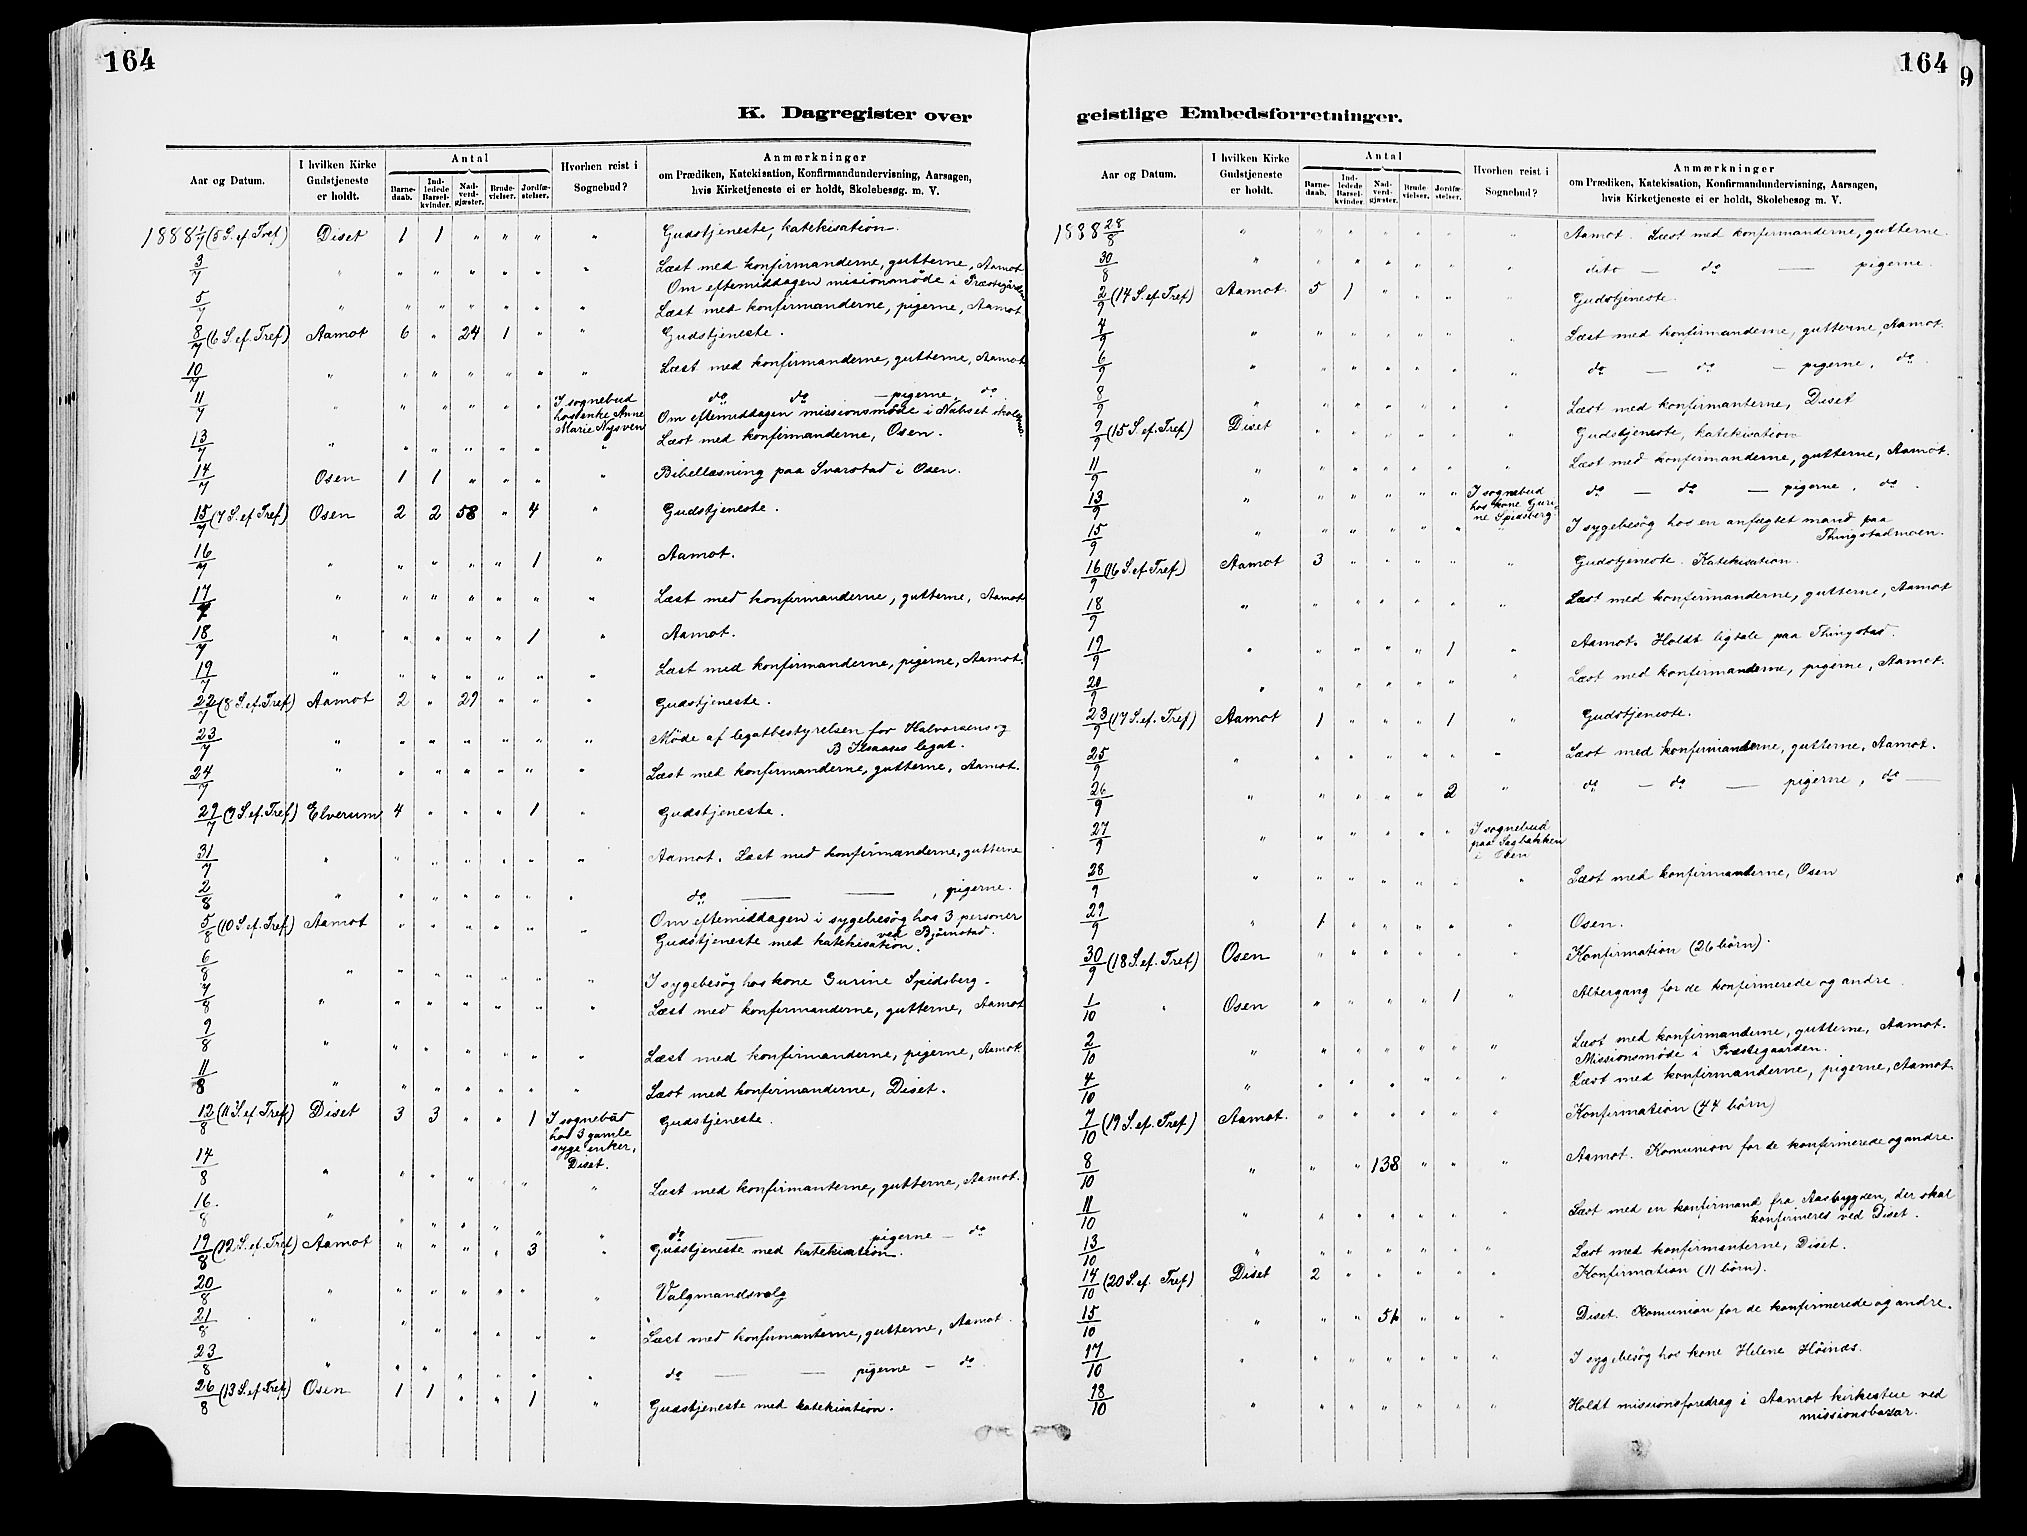 164
K. Dagregister over
Aar og Datum. I hvilken Kirke Gudstjeneste er holdt. Antal Barnedaab. Indledede Barselkvinder. Nadverdgjæster. Brudevielser. Jordfæstelser. Hvorhen reist i Sognebud? Anmærkninger om Prædiken, Katekisation, Konfirmandundervisning, Aarsagen, hvis Kirketjeneste ei er holdt, Skolebesøg. m. V.
1888 1/7 (5 S. ef Tref) Diset 1 1 " " " " Gudstjeneste, katekisation.
3/7 " " " " " " " Læst med konfirmanderne, gutterne, Aamot
Om eftemiddagen misionsmöde i Præstegården
5/7 " " " " " " " Læst med konfirmanderne, pigerne, Aamot
8/7 (6 S. ef. Tref) Aamot 6 " 24 1 " " Gudstjeneste.
10/7 " " " " " " " Læst med konfirmanderne, gutterne, Aamot.
11/7 " " " " " " I sognebud hos enke Anne Marie Nysven do do — pigerne, do
Om eftemiddagen missionsmöde i Nabset skolehus.
13/7 " " " " " " " Læst med konfirmanderne, Osen.
14/7 Osen 1 1 " " " " Bibellæsning paa Svarstad i Osen.
15/7 (7 S. ef Tref) Osen 2 2 58 " 4 " Gudstjeneste.
16/7 " " " " " 1 " Aamot.
17/7 " " " " " " " Læst med konfirmanderne, gutterne, Aamot
18/7 " " " " " 1 " Aamot.
19/7 " " " " " " " Læst med konfirmanderne, pigerne, Aamot.
22/7 (8 S. ef. Tref) Aamot 2 " 29 " " " Gudstjeneste.
23/7 " " " " " " " Möde af legatbestyrelsen for Halvorsens og
B Isaases legat.
24/7 " " " " " " " Læst med konfirmanderne, gutterne, Aamot.
29/7 (9 S. ef. Tref) Elverum 4 " " " 1 " Gudstjeneste.
31/7 " " " " " " " Aamot. Læst med konfirmanderne, gutterne
2/8 " " " " " " " do — — , pigerne.
5/8 (10 S. ef. Tref) Aamot " " " " " " Om eftemiddagen i sygebesög hos 3 personer
ved Björnstad.
Gudstjeneste med katekisation.
6/8 " " " " " " " I sygebesög hos kone Gurine Spidsberg.
7/8 " " " " " " " Læst med konfirmanderne, gutterne, Aamot
9/8 " " " " " " " Læst med konfirmanderne, pigerne, Aamot.
11/8 " " " " " " " Læst med konfirmanderne, Diset.
12/8 (11 S. ef. Tref) Diset 3 3 " " 1 I sognebud hos 3 gamle syge enker, Diset. Gudstjeneste.
14/8 " " " " " " " Læst med konfirmanterne, gutterne, Aamot.
16/8 " " " " " " " do — — pigerne — do
19/8 (12 S. ef. Tref) Aamot " " " " 3 " Gudstjeneste med katekisation.
20/8 " " " " " " " Valgmandsvalg
21/8 " " " " " " " Læst med konfirmanterne, gutterne, Aamot.
23/8 " " " " " " " do — — pigerne — do.
26/8 (13 S. ef. Tref) Osen 1 1 " " 1 " Gudstjeneste med katekisation.
164
9
geistlige Embedsforretninger.
Aar og Datum. I hvilken Kirke Gudstjeneste er holdt. Antal Barnedaab. Indledede Barselkvinder. Nadverdgjæster. Brudevielser. Jordfæstelser. Hvorhen reist i Sognebud? Anmærkninger om Prædiken, Katekisation, Konfirmandundervisning, Aarsagen, hvis Kirketjeneste ei er holdt, Skolebesøg m. V.
1888 28/8 " " " " " " " Aamot. Læst med konfirmanderne, gutterne.
30/8 " " " " " " " dito — do — pigerne.
2/9 (14 S. ef. Tref) Aamot. 5 1 " " " " Gudstjeneste.
4/9 " " " " " " " Læst med konfirmanderne, gutterne, Aamot.
6/9 " " " " " " " do — do — pigerne, do.
8/9 " " " " " " " Læst med konfirmanterne, Diset
9/9 (15 S. ef. Tref) Diset " " " " " " Gudstjeneste, katekisation
11/9 " " " " " " " Læst med konfirmanderne, gutterne, Aamot.
13/9 " " " " " " I sognebud hos kone Gurine Spidsberg. do — do — pigerne, do.
15/9 " " " " " " " I sygebesög hos en anfægtet mand paa
Thingstadmoen.
16/9 (16 S. ef. Tref) Aamot 3 " " " " " Gudstjeneste. Katekisation.
18/9 " " " " " " " Læst med konfirmanderne, gutterne, Aamot
19/9 " " " " " 1 " Aamot. Holdt ligtale paa Thingstad.
20/9 " " " " " " " Læst med konfirmanderne, pigerne, Aamot.
23/9 (17 S. ef. Tref) Aamot 1 " " " 1 " Gudstjeneste.
25/9 " " " " " " " Læst med konfirmanderne, gutterne, Aamot.
26/9 " " " " " 2 " do — do — pigerne, do —
27/9 " " " " " " I sognebud paa Sagbakken i Osen
28/9 " " " " " " " Læst med konfirmanderne, Osen
29/9 " 1 " " " " " Osen.
30/9 (18 S. ef. Tref) Osen " " " " " " Konfirmation (26 börn).
1/10 " Osen " " " " 1 " Altergang for de konfirmerede og andre.
2/10 " " " " " " " Læst med konfirmanderne, gutterne, Aamot.
Missionsmöde i Præstegaarden.
4/10 " " " " " " " Læst med konfirmanderne, pigerne, Aamot
7/10 (19 S. ef. Tref) Aamot. " " " " " " Konfirmation (44 börn)
8/10 " " " 138 " " " Aamot. Komunion for de konfirmerede og andre.
11/10 " " " " " " " Læst med en konfirmand fra Aasbygden, der skal
konfirmeres ved Diset.
13/10 " " " " " " " Læst med konfirmanterne, Diset.
14/10 (20 S. ef. Tref) Diset 2 " " " " " Konfirmation (11 börn).
15/10 " " " 51 " " " Diset. Komunion for de konfirmerede og andre.
17/10 " " " " " " " I sygebesög hos kone Helene Höinæs.
18/10 " " " " " " " Holdt missionsforedrag i Aamot kirkestue ved
missionsbazar.